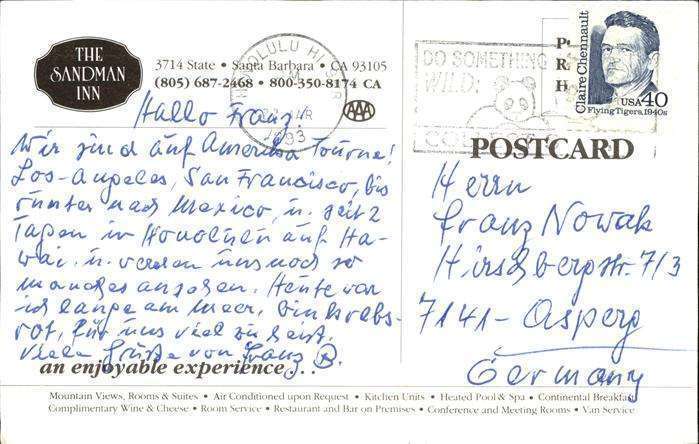 THE
SANDMAN
INN
3714 State • Santa Barbara • CA 93105
(805) 687-2468 • 800-350-8174 CA
AAA
HONOLULU HI
1993
DO SOMETHING
WILD:
COLLECT
Claire Chennault
USA 40
Flying Tigers, 1940s
POSTCARD
Hallo Franz!
Wir sind auf Amerika Tourne!
Los-Angeles, San Francisco, bis
runter nach Mexico, u. seit 2
Tagen in Honolulu auf Ha-
wai. u. werden uns noch so
manches ansehen. Heute war
ich lange am Meer, bin krebs-
rot, für uns viel zu heiß.
Viele Grüße von Franz B.
Herrn
Franz Nowak
Hirschbergstr. 7/3
7141 - Asperg
Germany
an enjoyable experience . . .
Mountain Views, Rooms & Suites • Air Conditioned upon Request • Kitchen Units • Heated Pool & Spa • Continental Breakfast
Complimentary Wine & Cheese • Room Service • Restaurant and Bar on Premises • Conference and Meeting Rooms • Van Service